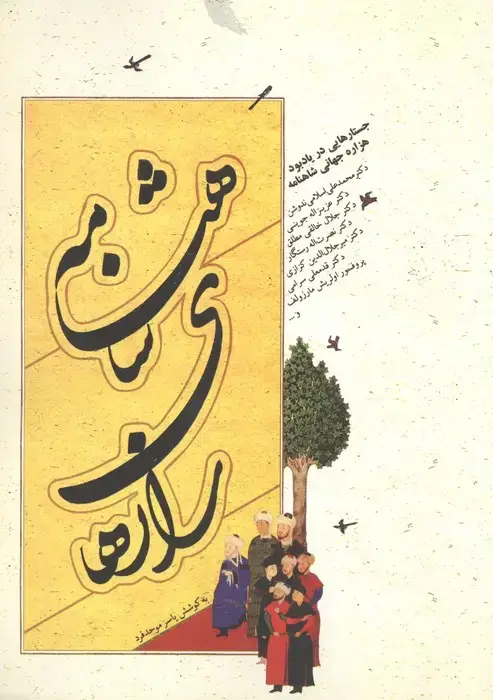 جستارهایی در یادبود
هزاره جهانی شاهنامه
دکتر محمدعلی اسلامی ندوشن
دکتر عزیزاله جوینی
دکتر جلال خالقی مطلق
دکتر نصرت‌اله رستگار
دکتر میرجلال‌الدین کزازی
دکتر قدمعلی سرامی
پروفسور اولریش مارزولف
و...
به کوشش یاسر موحدفرد